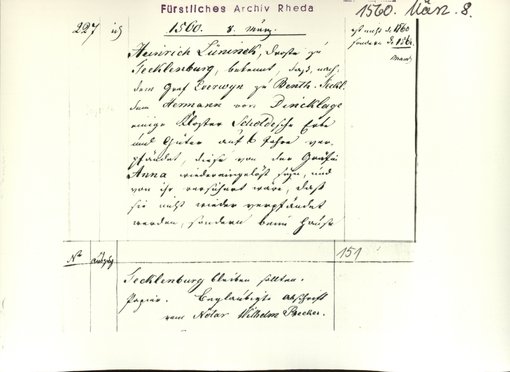 Fürstliches Archiv Rheda
1560. März. 8.
227
1560. 8. März.
ist nicht de 1560
sondern de
Heinrich Lüninck, Droste zu
Tecklenburg, bekennt, dass, nach-
dem Graf Everwyn zu Benth. Teckl.
dem Hermann von Dincklage
einige Kloster Scholdesche Erbe
und Güter auf 6 Jahre ver-
pfändet, diese von der Gräfin
Anna wiedereingelöst seyn, und
von ihr versichert wäre, dass
sie nicht wieder verpfändet
werden, sondern beim Hause
No
151
Tecklenburg bleiben sollten.
Papier. Beglaubigte Abschrift
vom Notar Wilhelm Becker.